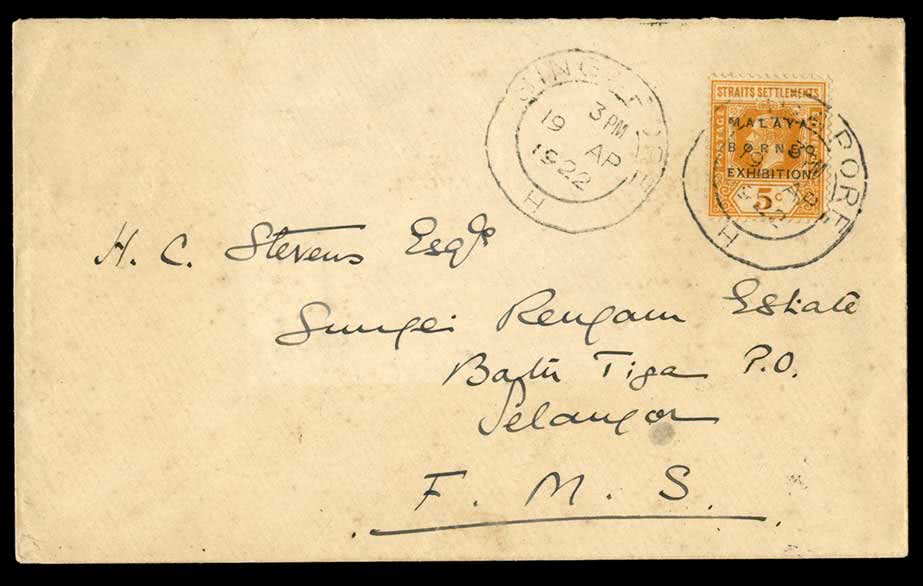 SINGAPORE
3 PM
19 AP
1922
H
STRAITS SETTLEMENTS
POSTAGE
MALAYA
BORNEO
EXHIBITION.
5c
PORE
H
H. C. Stevens Esqre
Sungei Rengam Estate
Batu Tiga P.O.
Selangor
F. M. S.